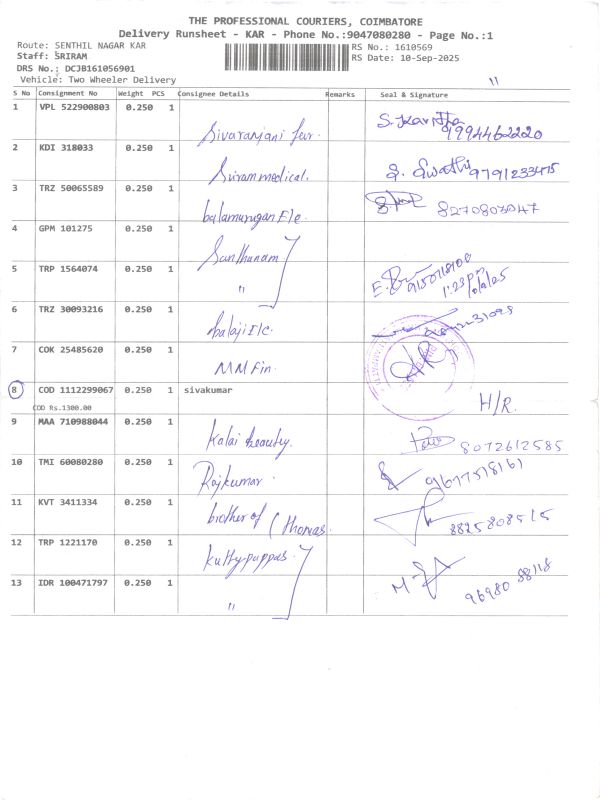 THE PROFESSIONAL COURIERS, COIMBATORE
Delivery Runsheet - KAR - Phone No.:9047080280 - Page No.:1
Route: SENTHIL NAGAR KAR
RS No.: 1610569
Staff: SRIRAM
RS Date: 10-Sep-2025
DRS No.: DCJB161056901
Vehicle: Two Wheeler Delivery
S No Consignment No Weight PCS Consignee Details Remarks Seal & Signature
1 VPL 522900803 0.250 1 Sivaranjani S. Kavitha 9994462220
2 KDI 318033 0.250 1 Sriram medical. S. Swathi 9791233475
3 TRZ 50065589 0.250 1 balamurugan Ele. 8270803047
4 GPM 101275 0.250 1 Santhanam
5 TRP 1564074 0.250 1 " 1:23pm
6 TRZ 30093216 0.250 1 balaji Ele.
7 COK 25485620 0.250 1 MM Fin.
8 COD 1112299067 0.250 1 sivakumar H/R.
COD Rs.1300.00
9 MAA 710988044 0.250 1 Kalai beauty. 8072612585
10 TMI 60080280 0.250 1 Rajkumar. 9677518161
11 KVT 3411334 0.250 1 brother of (thomas 8825808515
12 TRP 1221170 0.250 1 kutty puppas.
13 IDR 100471797 0.250 1 " 96980 88118